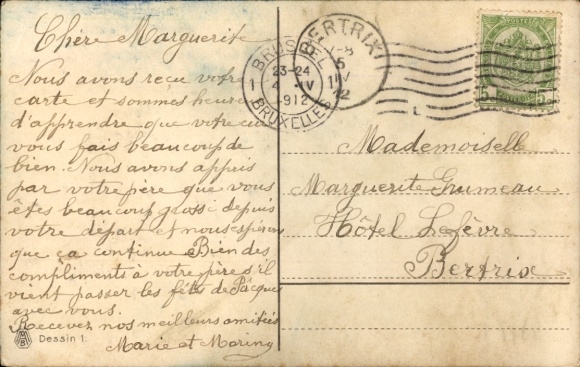 Chère Marguerite
Nous avons reçu votre
carte et sommes heureux
d'apprendre que votre cure
vous fais beaucoup de
bien. Nous avons appris
par votre père que vous
êtes beaucoup grossi depuis
votre départ et nous espérons
que ça continue Bien des
compliments à votre père s'il
vient passer les fêtes de Pâques
avec vous.
Recevez nos meilleurs amitiés
Marie et
Dessin 1.
BRUSSEL
23-24
4 IV
1912
BRUXELLES
1
BERTRIX
5
IV
12
POSTES
5 5
Mademoiselle
Marguerite
Hôtel Lefèvre
Bertrix